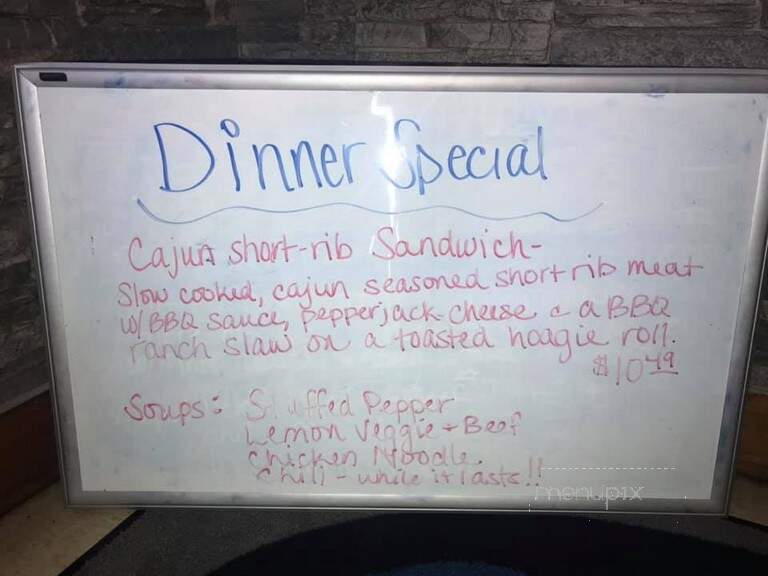 Dinner Special
Cajun short-rib Sandwich-
Slow cooked, cajun seasoned short rib meat
w/ BBQ sauce, pepperjack cheese & a BBQ
ranch slaw on a toasted hoagie roll.
$10.49
Soups: Stuffed Pepper
Lemon Veggie + Beef
Chicken Noodle
Chili - while it lasts!!
menupix